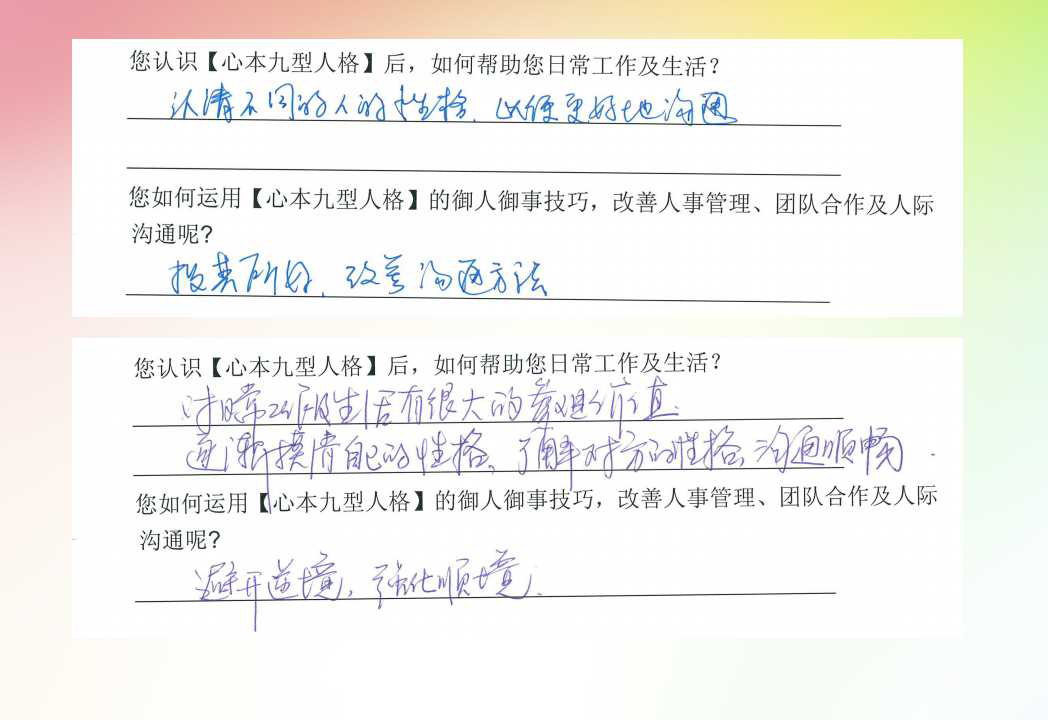 您认识【心本九型人格】后，如何帮助您日常工作及生活？
认清不同的人的性格，以便更好地沟通
您如何运用【心本九型人格】的御人御事技巧，改善人事管理、团队合作及人际
沟通呢?
投其所好，改善沟通方法
您认识【心本九型人格】后，如何帮助您日常工作及生活？
对日常工作及生活有很大的价值.
逐渐摸清自己的性格、了解对方的性格、沟通顺畅.
您如何运用【心本九型人格】的御人御事技巧，改善人事管理、团队合作及人际
沟通呢?
避开逆境，强化顺境.